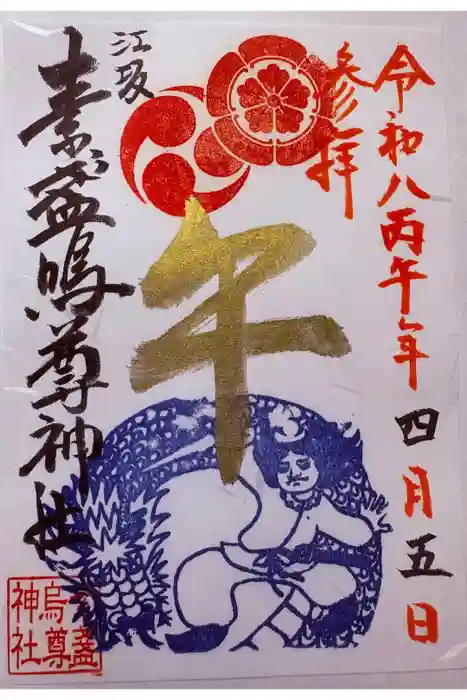 令和八丙午年四月五日
参拝
午
江坂
素盞嗚尊神社
素盞
烏尊
神社